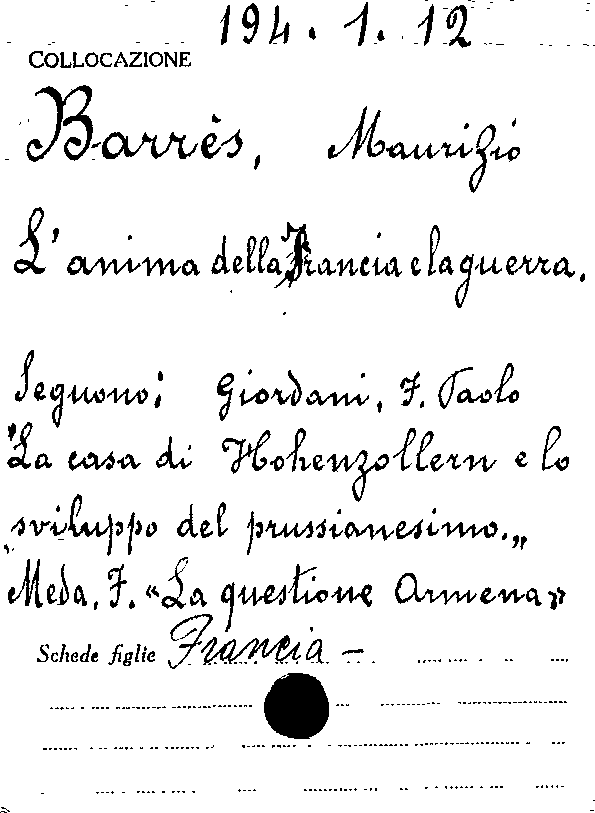 194. 1. 12
COLLOCAZIONE
Barrès, Maurizio
L'anima della Francia e la guerra.
Seguono: Giordani, F. Paolo
"La casa di Hohenzollern e lo
sviluppo del prussianesimo.„
Meda, F. «La questione Armena»
Schede figlie Francia –